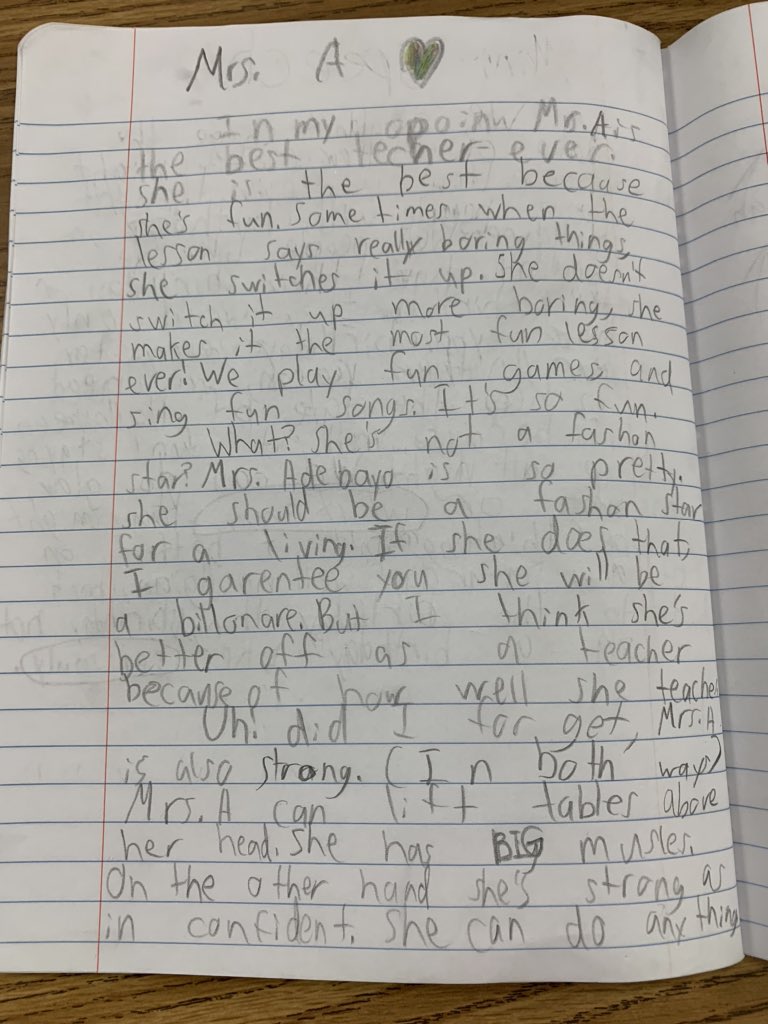 Mrs. A
In my opoinu Mrs. A is
the best techer ever.
she is the best because
she's fun. Some times when the
lesson says really boring things,
she switches it up. She doesn't
switch it up more boring, she
makes it the most fun lesson
ever! We play fun games and
sing fun songs. It's so fun.
What? she's not a fashon
star? Mrs. Adebayo is so pretty.
she should be a fashan star
for a living. If she does that,
I garentee you she will be
a billonare. But I think she's
better off as a teacher
because of how well she teaches
Uh! did I for get, Mrs. A
is also strong. (In both ways)
Mrs. A can lift tables above
her head. She has BIG musles.
On the other hand she's strong as
in confident. She can do any thing